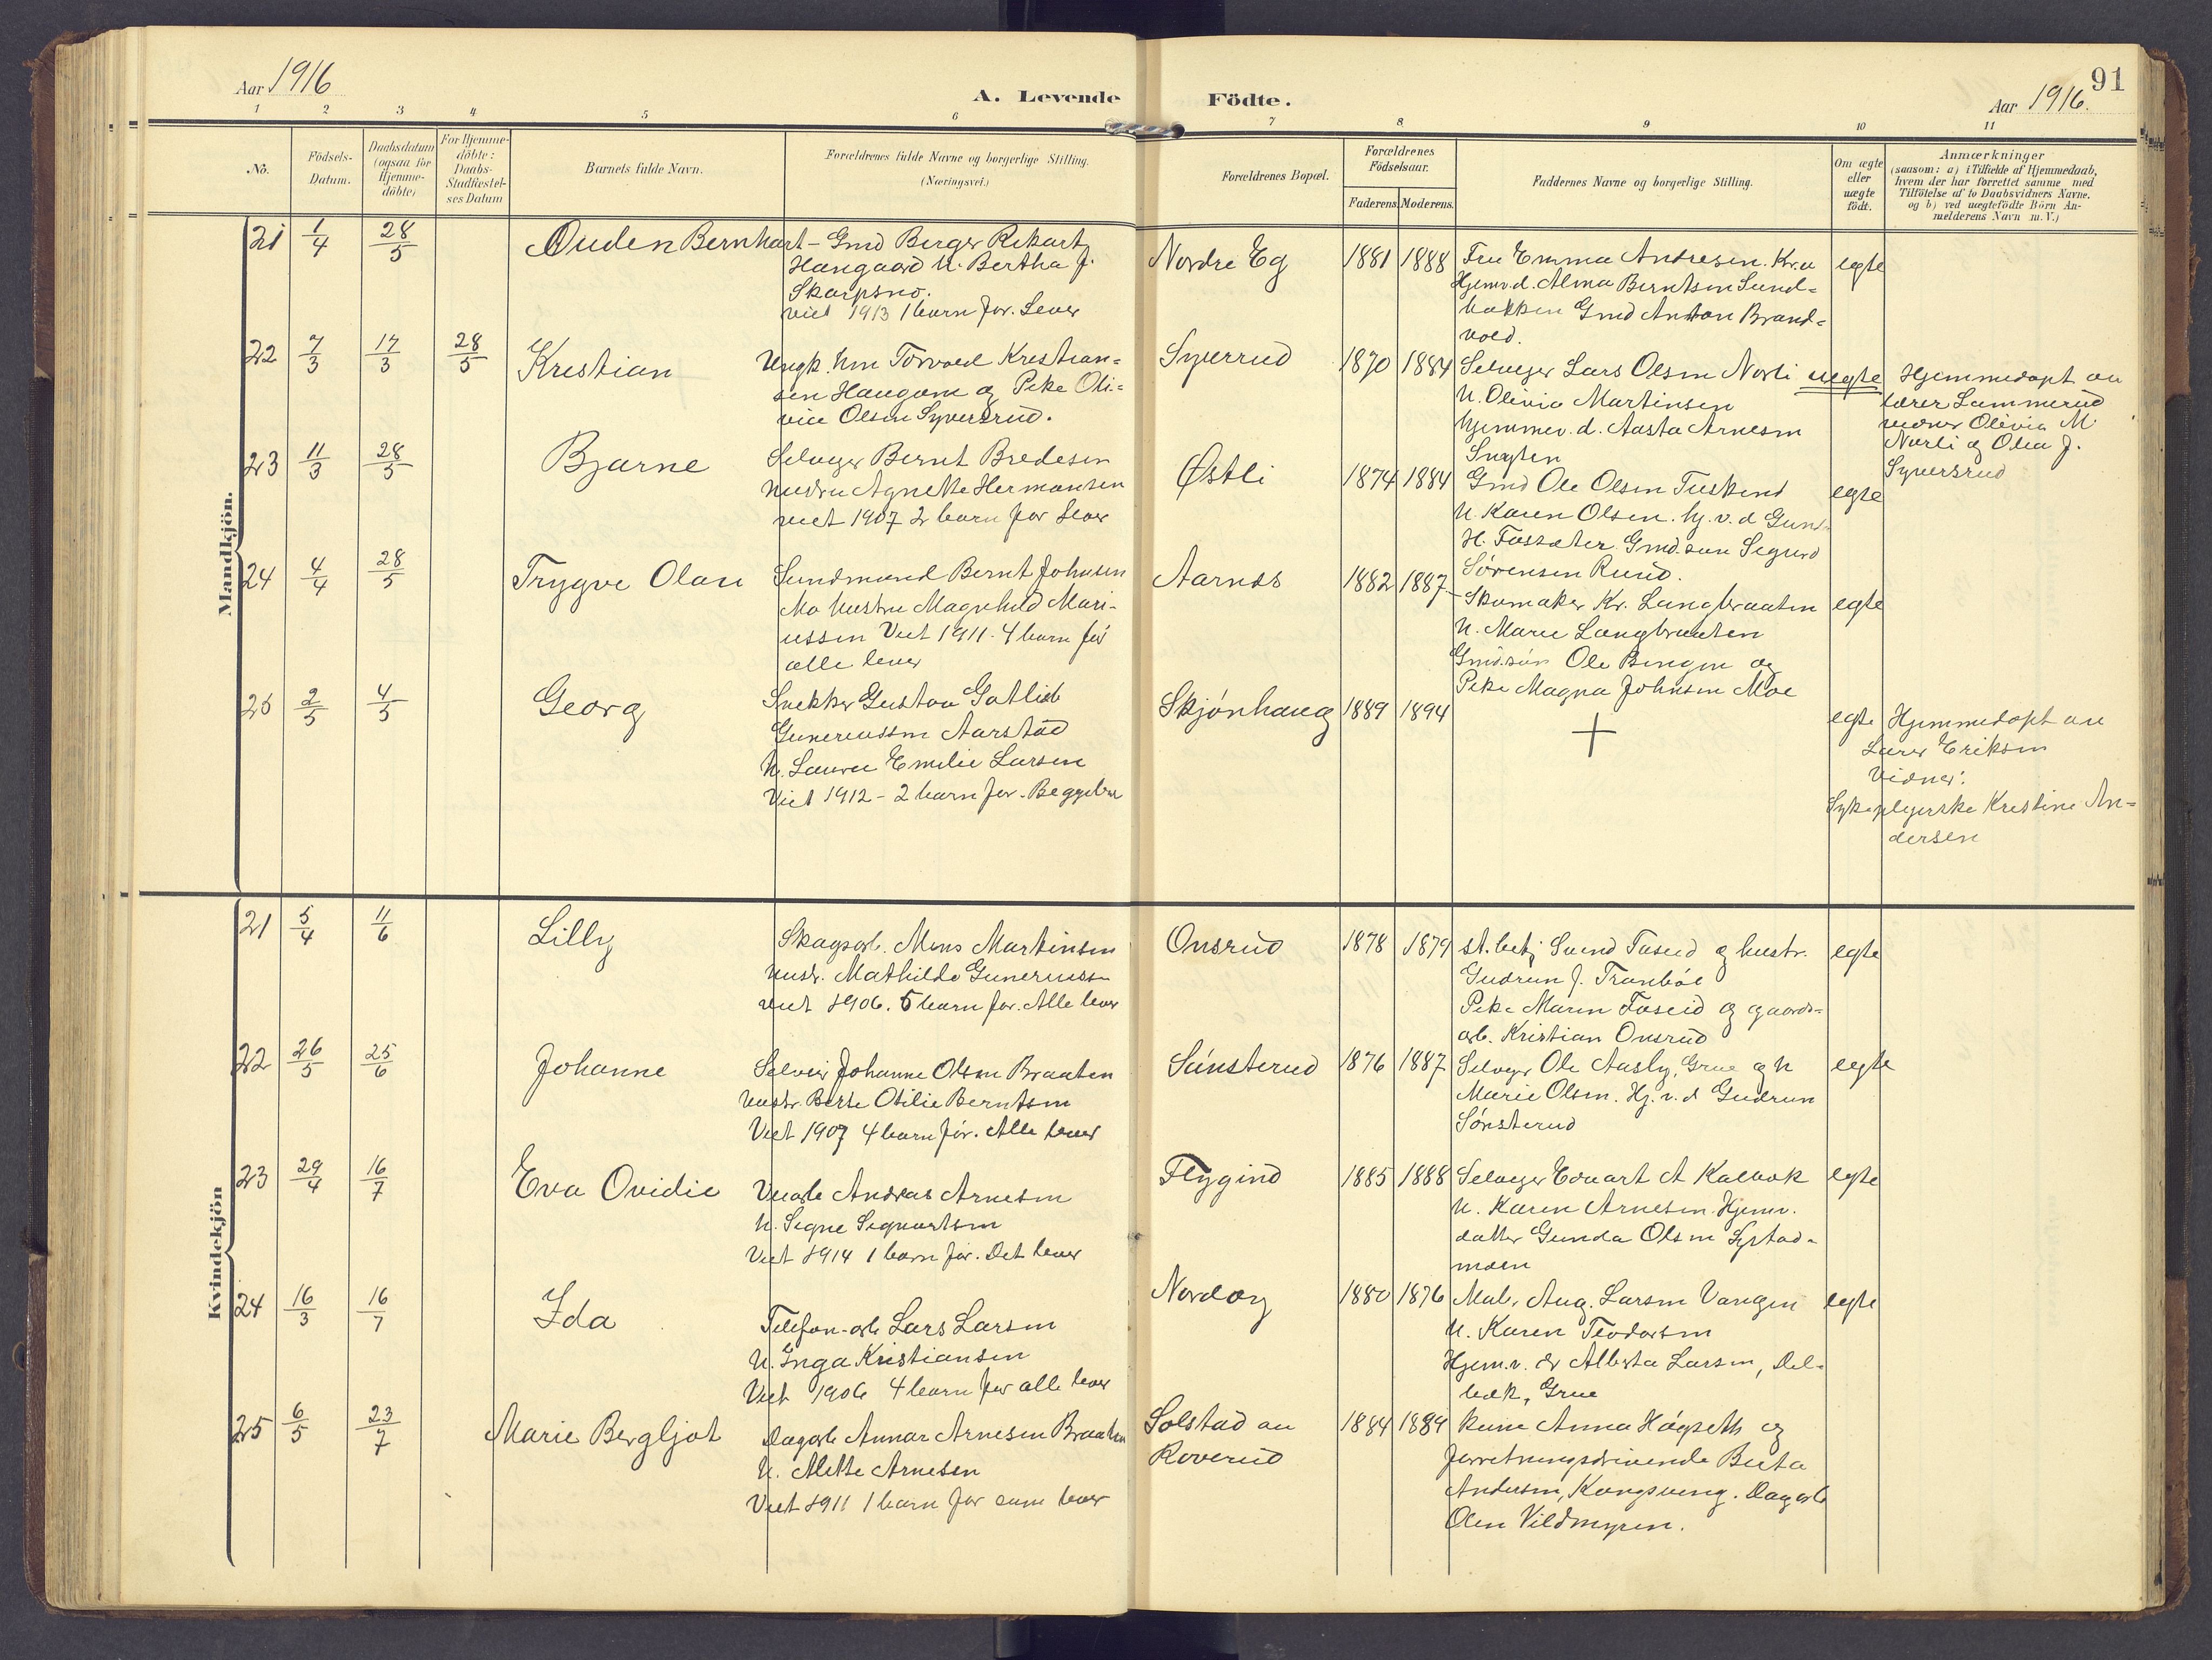 91
Aar 1916
A. Levende Födte.
Aar 1916.
1 2 3 4 5 6 7 8 9 10 11
No.
Födsels-
Datum.
Daabsdatum
(ogsaa for
Hjemme-
döbte)
For Hjemme-
döbte:
Daabs-
Stadfæstel-
ses Datum
Barnets fulde Navn.
Forældrenes fulde Navne og borgerlige Stilling.
(Næringsvei.)
Forældrenes Bopæl.
Forældrenes
Födselsaar.
Faderens. Moderens.
Faddernes Navne og borgerlige Stilling.
Om ægte
eller
uægte
födt.
Anmærkninger
(saasom: a) i Tilfælde af Hjemmedaab,
hvem der har forrettet samme med
Tilföielse af to Daabsvidners Navne.
og b) ved uægtefödte Börn An-
melderens Navn m.V.)
Mandkjön.
21 1/4 28/5 Ouden Bernhart
Gmd Berger Rikart
Haugaard h. Bertha J.
Skarpsno.
viet 1913 1 barn før. Lever
Nordre Eg 1881 1888
Fru Emma Andresen. Kr.a
Hjemv.d. Alma Berntsen Sund-
bakken Gmd Anton Brand-
vold.
egte
22 7/3 17/3 28/5 Kristian
Ungk. hm Torvald Kristian-
sen Haugom og Pike Oli-
via Olsen Syversrud.
Syverrud 1870 1884
Selveger Lars Olsen Norli
h. Olivia Martinsen
hjemmev.d. Aasta Arnesen
uegte
Hjemmedøpt av
lærer Lammerud
vidner Olivia M.
Norli og Olea J.
Syversrud
23 11/3 28/5 Bjarne
Selveger Bernt Bredesen
hustru Agnethe Hermansen
viet 1907 2 barn før lever
Østli 1874 1884
Gmd Ole Olsen Tuskind
h. Karen Olsen. hj.v.d Gund
H. Fossæter. Gmd.søn Sigurd
Sørensen Rund.
egte
24 4/4 28/5 Trygve Olav
Sundmand Bernt Johnsen
Mo hustru Magnhild Mari-
ussen Viet 1911. 4 barn før
alle lever
Aarnes 1882 1887
Skomaker Kr. Langbraaten
h. Marie Langbraaten
Gmd.søn Ole Bingen og
Pike Magna Johnsen Moe
egte
25 2/5 4/5 Georg
Snekker Gustav Gotlieb
Gunerussen Aarstad
h. Laura Emilie Larsen
Viet 1912 - 2 barn før. Begge lever
Skjønhaug 1889 1894
+
egte
Hjemmedøpt av
Lærer Eriksen
Vidner:
Sykepleierske Kristine An-
dersen
Kvindekjön
21 5/4 11/6 Lilly
Skogsarb. Mons Martinsen
hustr. Mathilde Gunerius
viet 1906. 5 barn før. Alle lever
Onsrud 1878 1879
st.betj Svend Faseid og hustr.
Gudrun J. Tranbøl
Pike Maren Faseid og gaards-
arb. Kristian Onsrud
egte
22 26/5 25/6 Johanne
Selveier Johanne Olsen Braaten
hustr. Berte Otilie Berntsen
Viet 1907 4 barn før. Alle lever
Sønsterud 1876 1887
Selveger Ole Aasby, Grue og h
Marie Olsen. Hj.v.d Gudrun
Sønsterud
egte
23 29/4 16/7 Eva Ovidie
Veiarb Andreas Arnesen
h. Signe Sigvartsen
Viet 1914 1 barn før. Det lever
Flygind 1885 1888
Selveger Edvart A Kalbæk
h. Karen Arnesen. Hjemv.
datter Gunda Olsen Systad-
moen
egte
24 16/3 16/7 Ida
Telefon-arb Lars Larsen
h. Inga Kristiansen
Viet 1906 4 barn før alle lever
Nordøy 1880 1876
Mal. Aug. Larsen Vangen
h. Karen Teodorsen
Hjem.v. dr Alberta Larsen, Del-
bæk, Grue
egte
25 6/5 23/7 Marie Bergljot
Dagarb Annar Arnesen Braaten
h. Mette Arnesen
Viet 1911 1 barn før som lever
Solstad av
Roverud
1884 1889
Anna Høgseth og
forretningsdrivende Berta
Andersen, Kongsving. Dagarb
Olen Vildmyren.